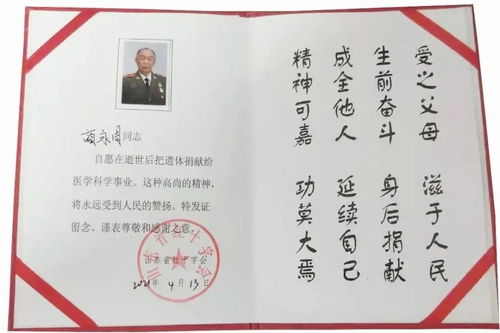 同志
自愿在逝世后把遗体捐献给
医学科学事业。这种高尚的精神,
将永远受到人民的赞扬。特发证
留念、谨表尊敬和感谢之意。
山东省红十字会
山东省红十字会
2021年4月13日
受之父母 滋于人民
生前奋斗 身后捐献
成全他人 延续自己
精神可嘉 功莫大焉